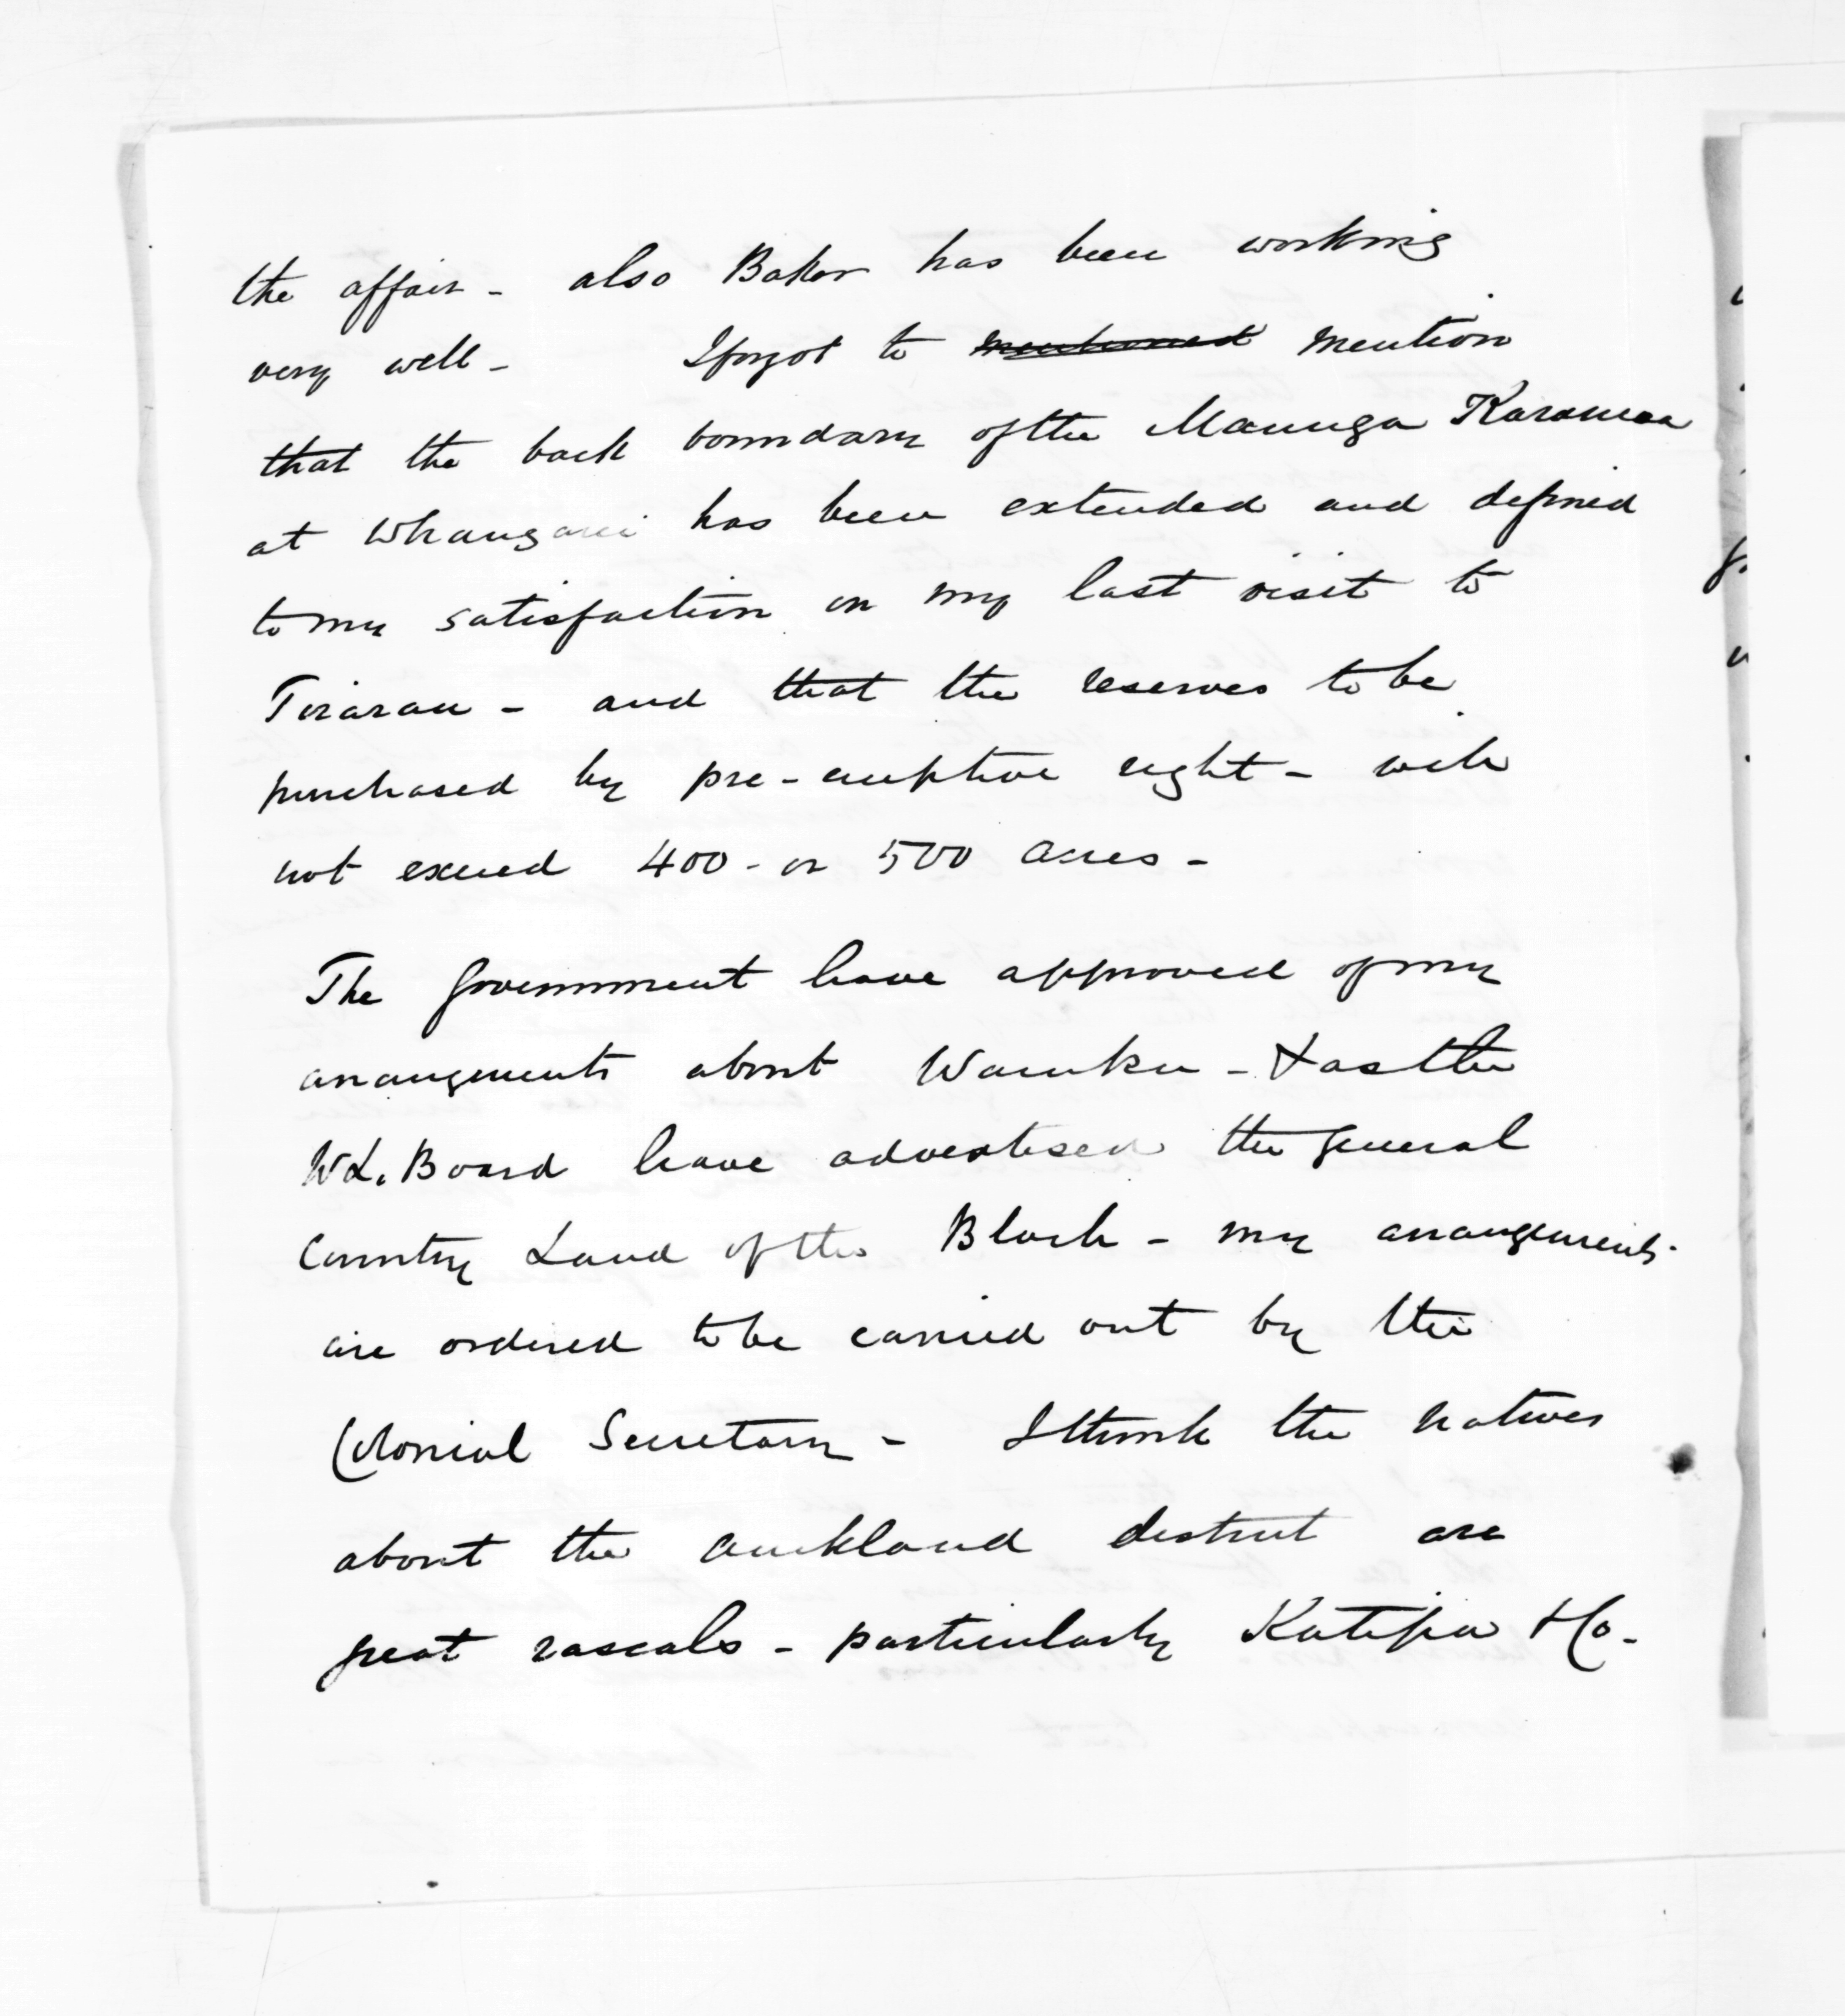 the affair - also Baker has been working
very well - I forgot to mentioned mention
that the back boundary of the Maunga Karamea
at Whangarei has been extended and defined
to my satisfaction on my last visit to
Tirarau - and that the reserves to be
purchased by pre-emptive right - will
not exceed 400 - or 500 acres -
The Government have approved of my
arrangements about Waiuku - & as the
W.L. Board have advertised the general
Country Land of the Block - my arrangements
are ordered to be carried out by the
Colonial Secretary - I think the natives
about the Auckland district are
great rascals - particularly Katipa & Co -